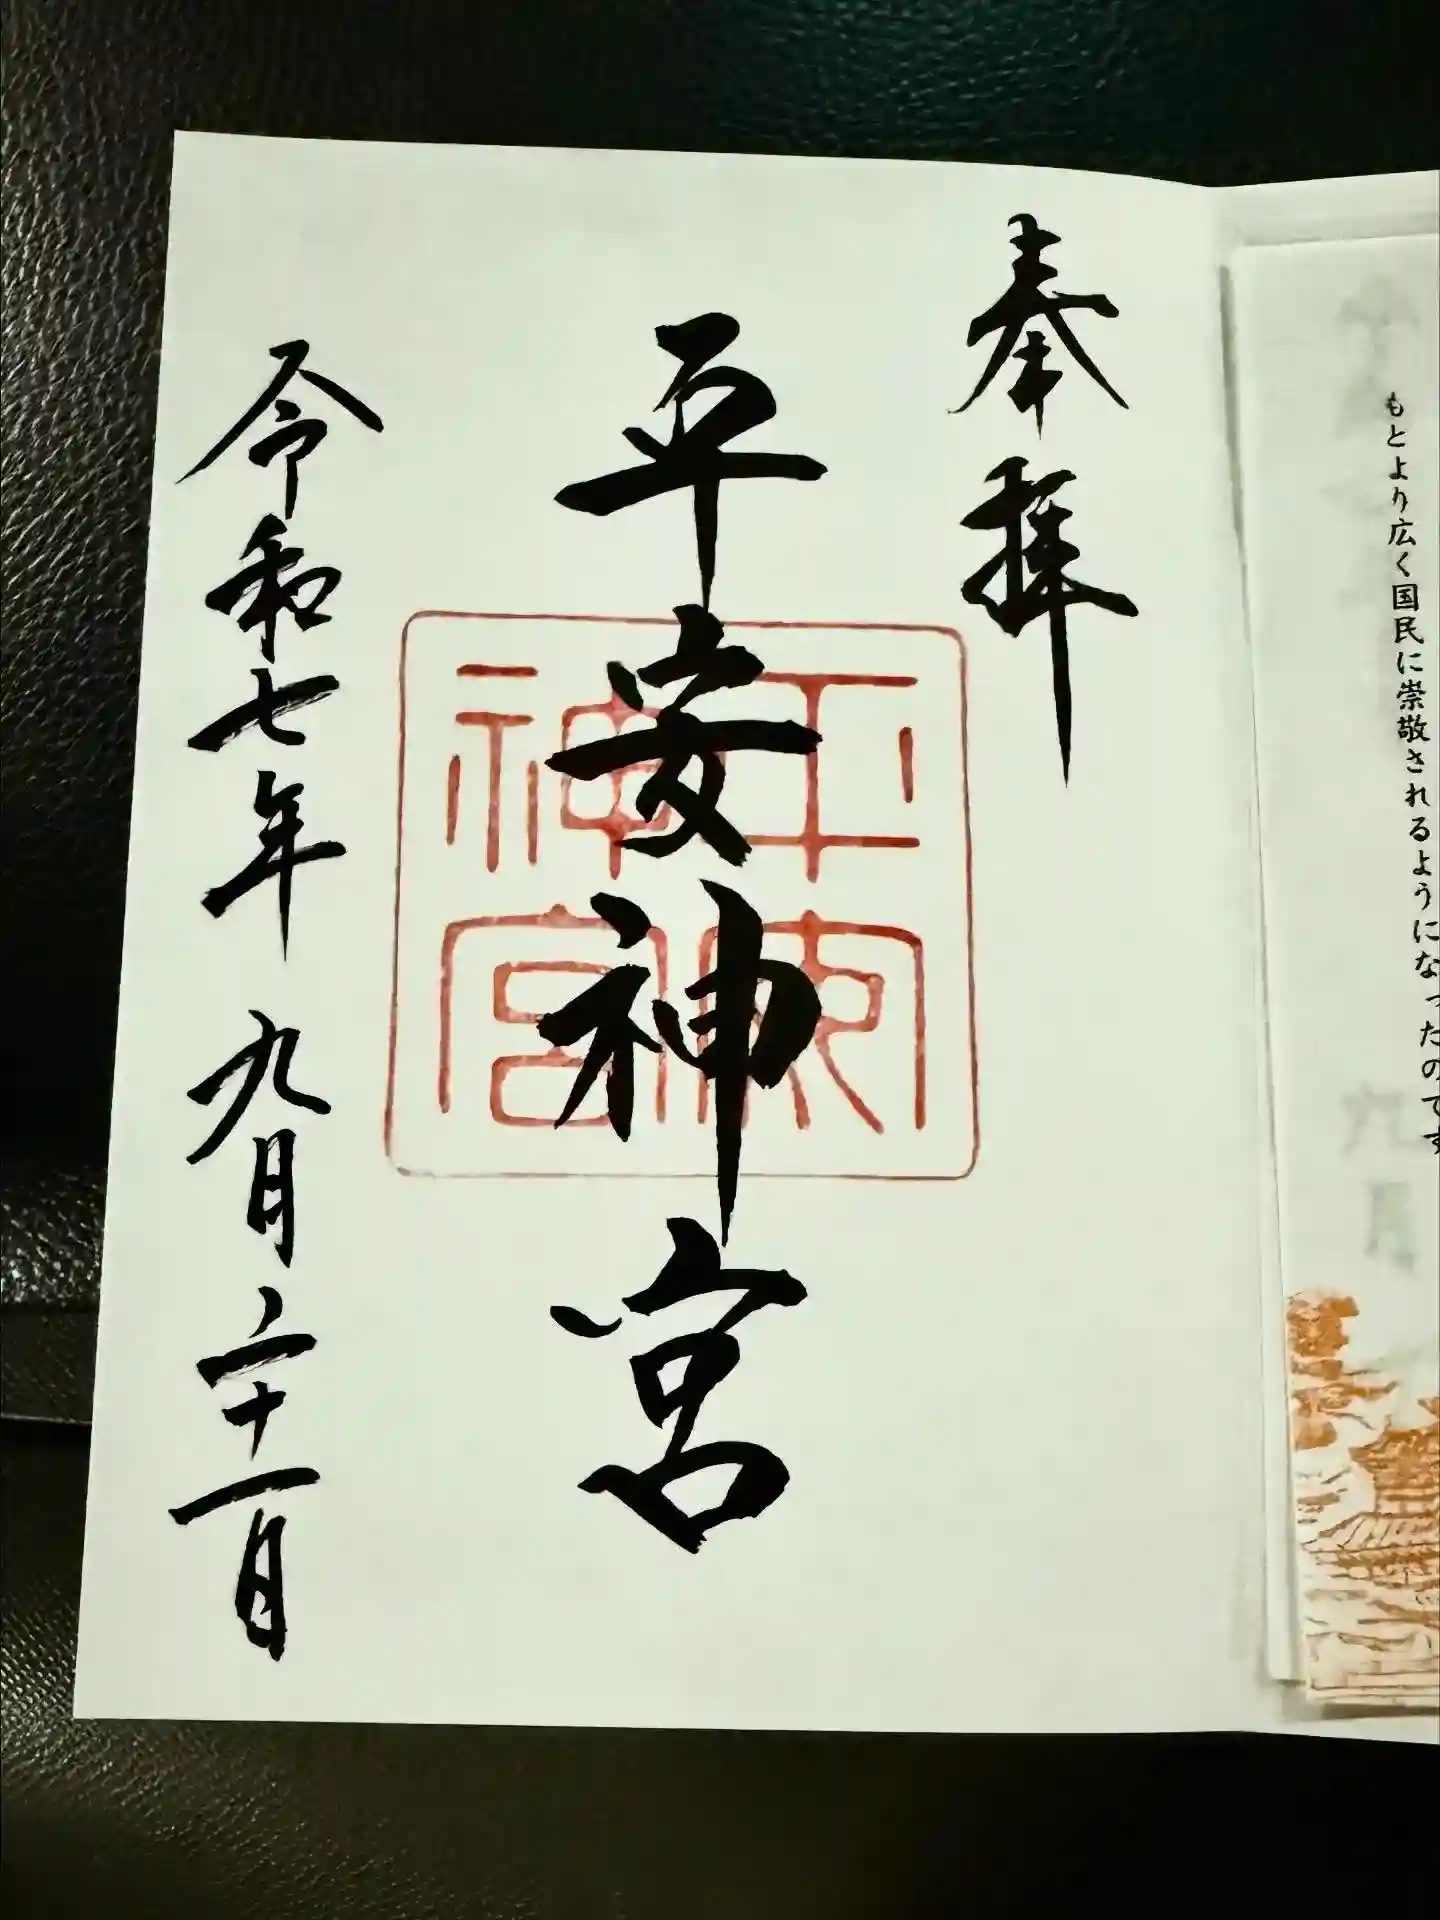 もとより広く国民に崇敬されるようになったのです
奉拝
平安神宮
平安神宮
令和七年 九月二十一日